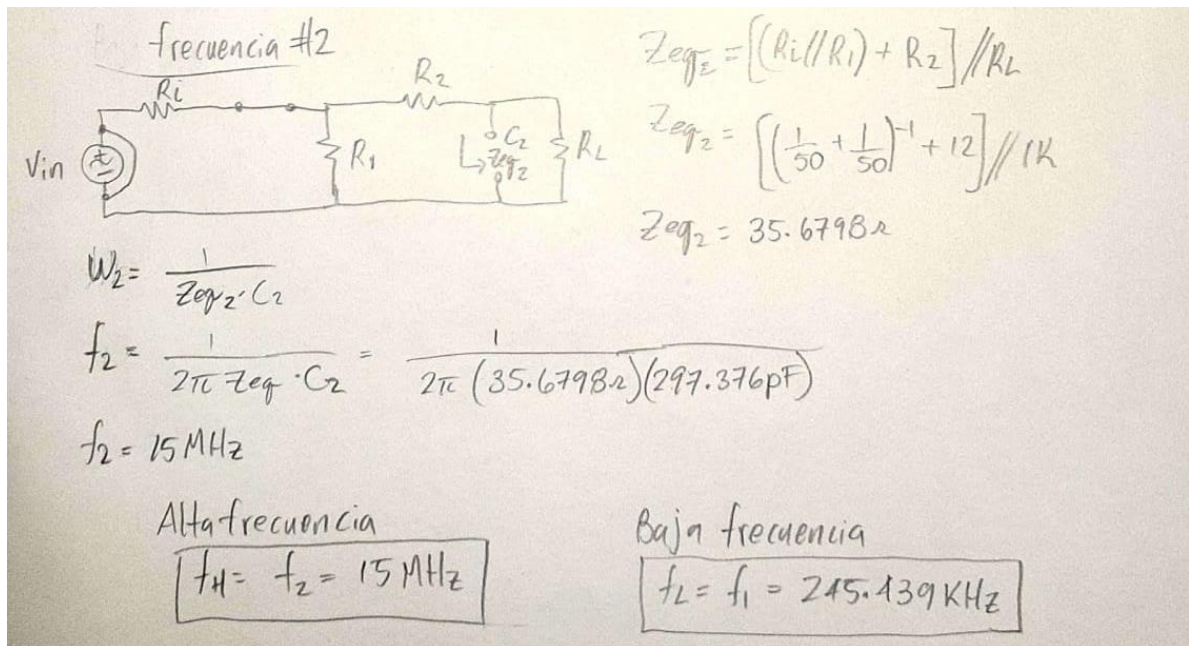 frecuencia #2
Ri
R2
Vin
R1
C2
Zeq2
RL
Zeq2 = [(Ri//R1) + R2]//RL
Zeq2 = [(1/50 + 1/50)^-1 + 12]//1K
Zeq2 = 35.6798Ω
W2 = 1/(Zeq2·C2)
f2 = 1/(2π Zeq·C2) = 1/(2π (35.6798Ω)(297.376pF))
f2 = 15 MHz
Alta frecuencia
fH = f2 = 15 MHz
Baja frecuencia
fL = f1 = 245.439 KHz